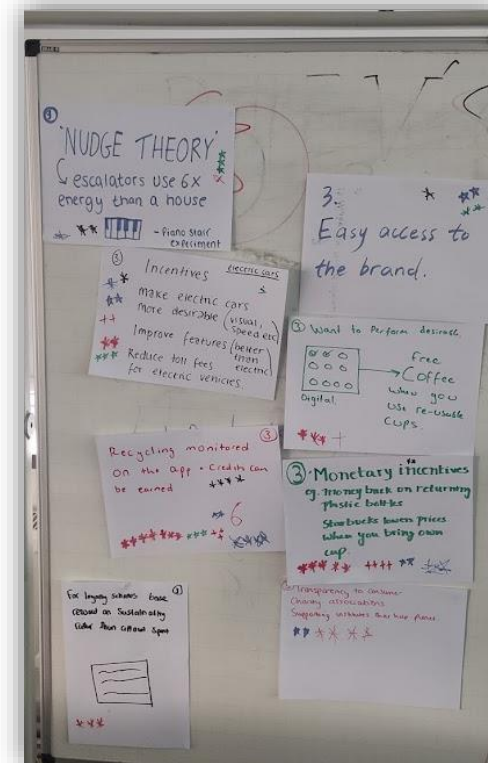 3
'NUDGE THEORY'
escalators use 6x
energy than a house
- Piano stair
experiment
3.
Easy access to
the brand.
3
Incentives
electric cars
Make electric cars
More desirable (visual,
speed etc)
Improve features (better
than
electric)
Reduce toll fees
for electric vehicles.
3 Want to perform desirable.
Digital.
Free
Coffee
when you
use re-usable
cups.
3
Recycling monitored
on the app + Credits can
be earned
6
3 Monetary incentives
eg. money back on returning
plastic bottles
Starbucks lowers prices
when you bring own
cup.
For loyalty schemes base
reward on Sustainability
Rather than amount spent
Transparency to consumer
Charity associations
Supporting that help planet